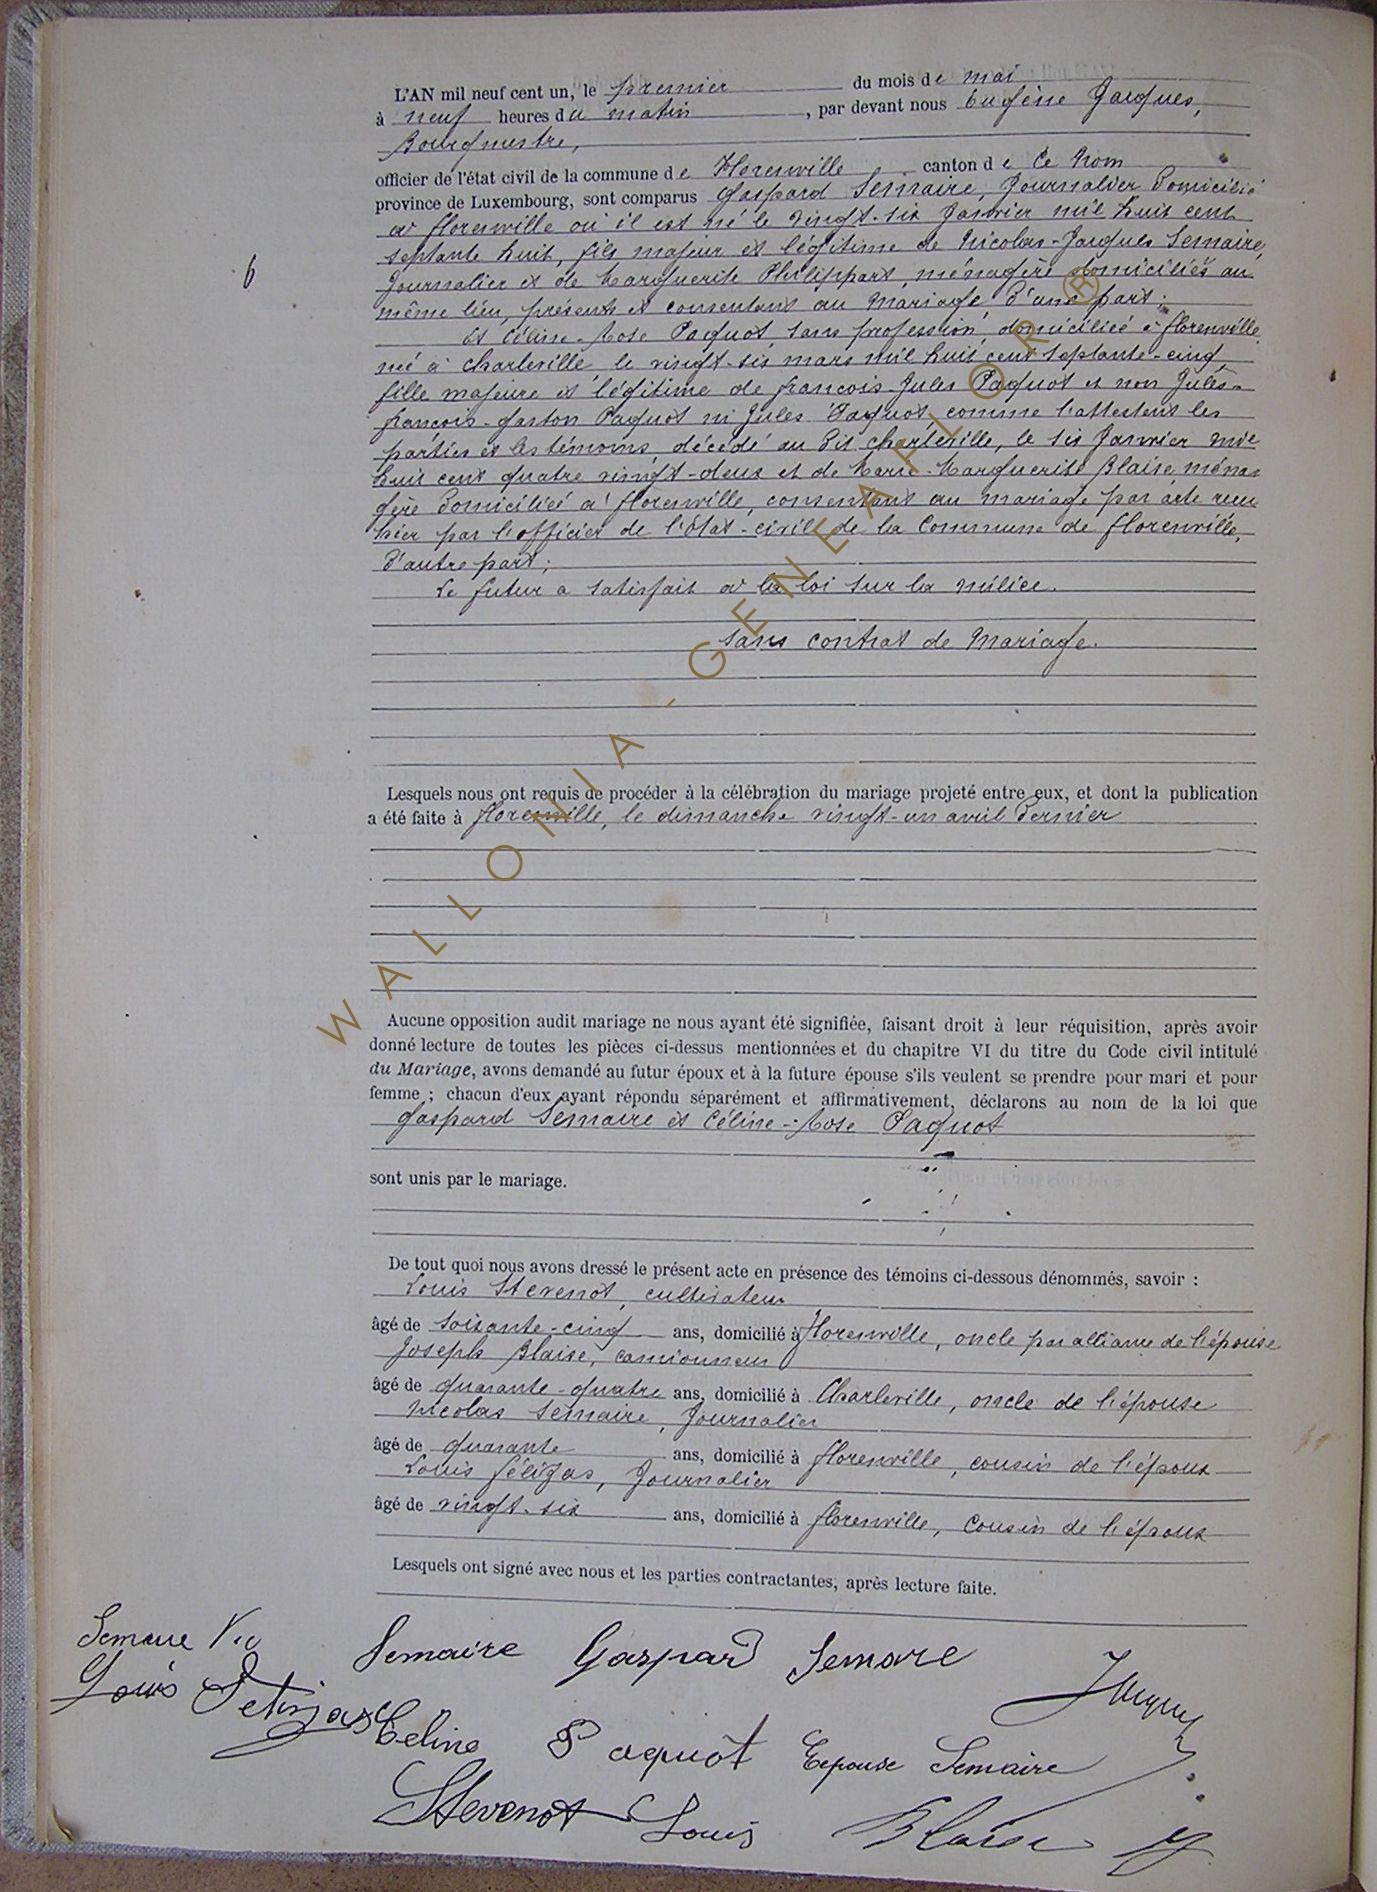 L'AN mil neuf cent un, le premier du mois de mai
à neuf heures du matin, par devant nous Eugène Jacques,
Bourgmestre,
officier de l'état civil de la commune de Florenville canton de Ce Nom
province de Luxembourg, sont comparus Gaspard Semaire, Journalier Domicilié
à florenville où il est né le vingt-six Janvier mil huit cent
septante huit, fils majeur et légitime de Nicolas-Jacques Semaire,
Journalier et de Marguerite Philippart, ménagère domiciliés au
même lieu, présents et consentant au Mariage, D'une part;
6
Et Céline-Rose Paquot, sans profession, domiciliée à florenville
née à Charleville le vingt-six mars mil huit cent septante-cinq,
fille majeure et légitime de françois-Jules Paquot et non Jules-
françois-gaston Paquot ni Jules Paquot, comme l'attestent les
parties et les témoins, décédé au Dit Charleville, le six Janvier mil
huit cent quatre vingt-deux et de Marie-Marguerite Blaise, ména-
gère Domiciliée à florenville, consentant au mariage par acte reçu
hier par l'officier de l'état-civil de la Commune de florenville,
D'autre part;
Le futur a satisfait à la loi sur la milice.
Sans contrat de Mariage.
Lesquels nous ont requis de procéder à la célébration du mariage projeté entre eux, et dont la publication
a été faite à florenville, le dimanche vingt-un avril Dernier
Aucune opposition audit mariage ne nous ayant été signifiée, faisant droit à leur réquisition, après avoir
donné lecture de toutes les pièces ci-dessus mentionnées et du chapitre VI du titre du Code civil intitulé
du Mariage, avons demandé au futur époux et à la future épouse s'ils veulent se prendre pour mari et pour
femme ; chacun d'eux ayant répondu séparément et affirmativement, déclarons au nom de la loi que
Gaspard Semaire et Céline-Rose Paquot
sont unis par le mariage.
De tout quoi nous avons dressé le présent acte en présence des témoins ci-dessous dénommés, savoir :
Louis Stevenot, cultivateur
âgé de soixante-cinq ans, domicilié à Florenville, oncle par alliance de l'épouse
Joseph Blaise, camionneur
âgé de quarante-quatre ans, domicilié à Charleville, oncle de l'épouse
Nicolas Semaire, Journalier
âgé de quarante ans, domicilié à florenville, cousin de l'époux
Louis Journalier
âgé de vingt-six ans, domicilié à florenville, Cousin de l'époux
Lesquels ont signé avec nous et les parties contractantes, après lecture faite.
Semaire Nic
Semaire Gaspard Semaire
Louis
Celine Paquot Epouse Semaire
Stevenot Louis Blaise
WALLONIA-GENEAFLOR ®